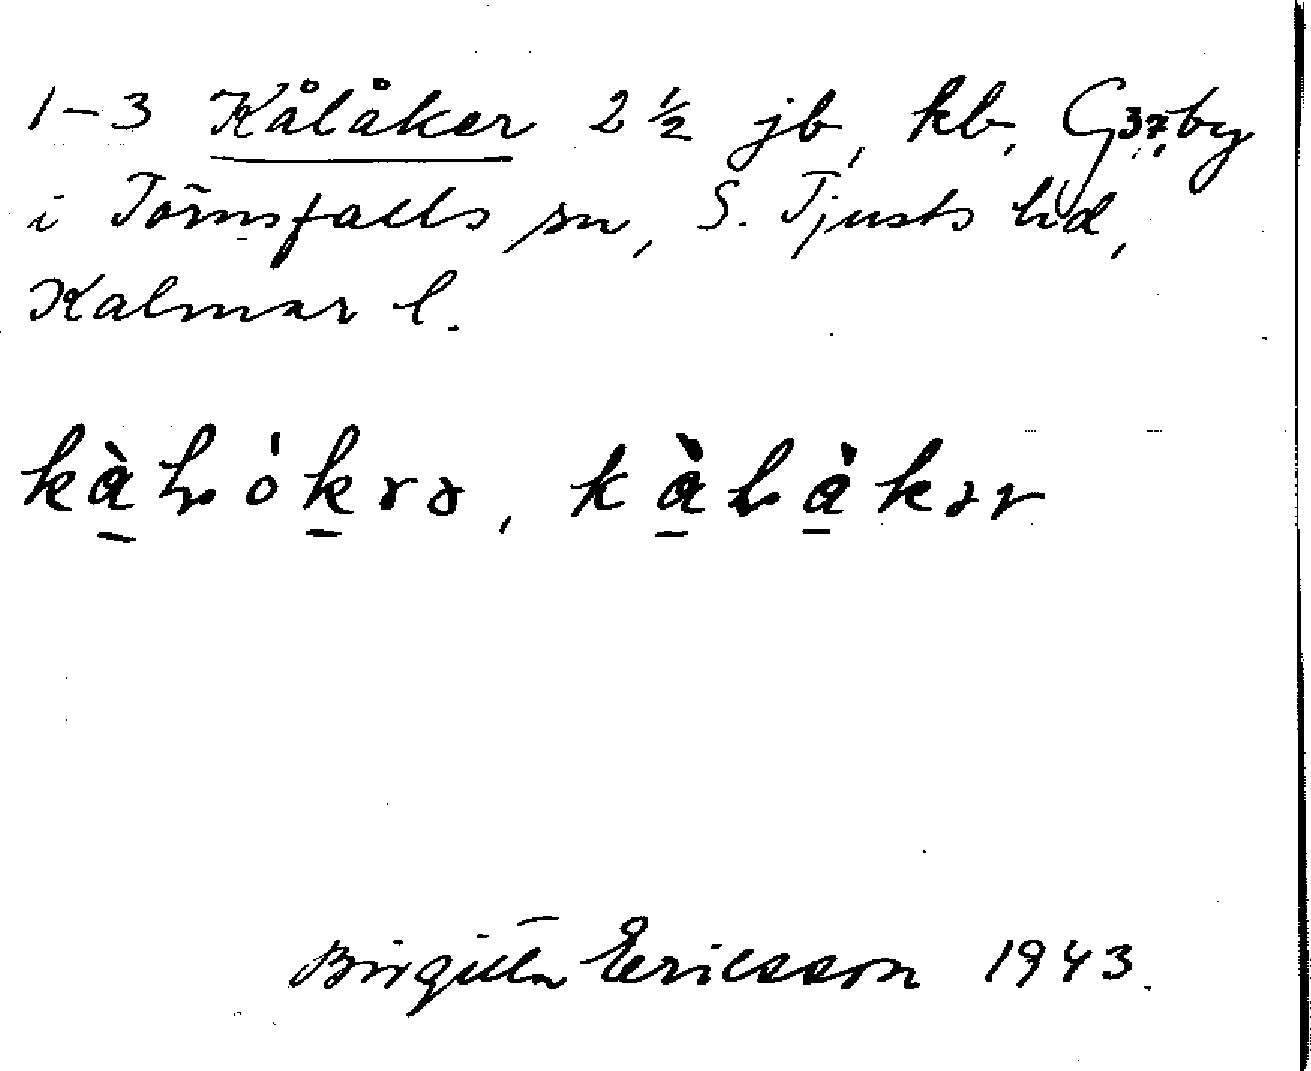 1-3 Kålåker 2 ½ jb, kb, G37, by
i Törnsfalls sn, S. Tjusts hd,
Kalmar l.
Birgitta Ericsson 1943.